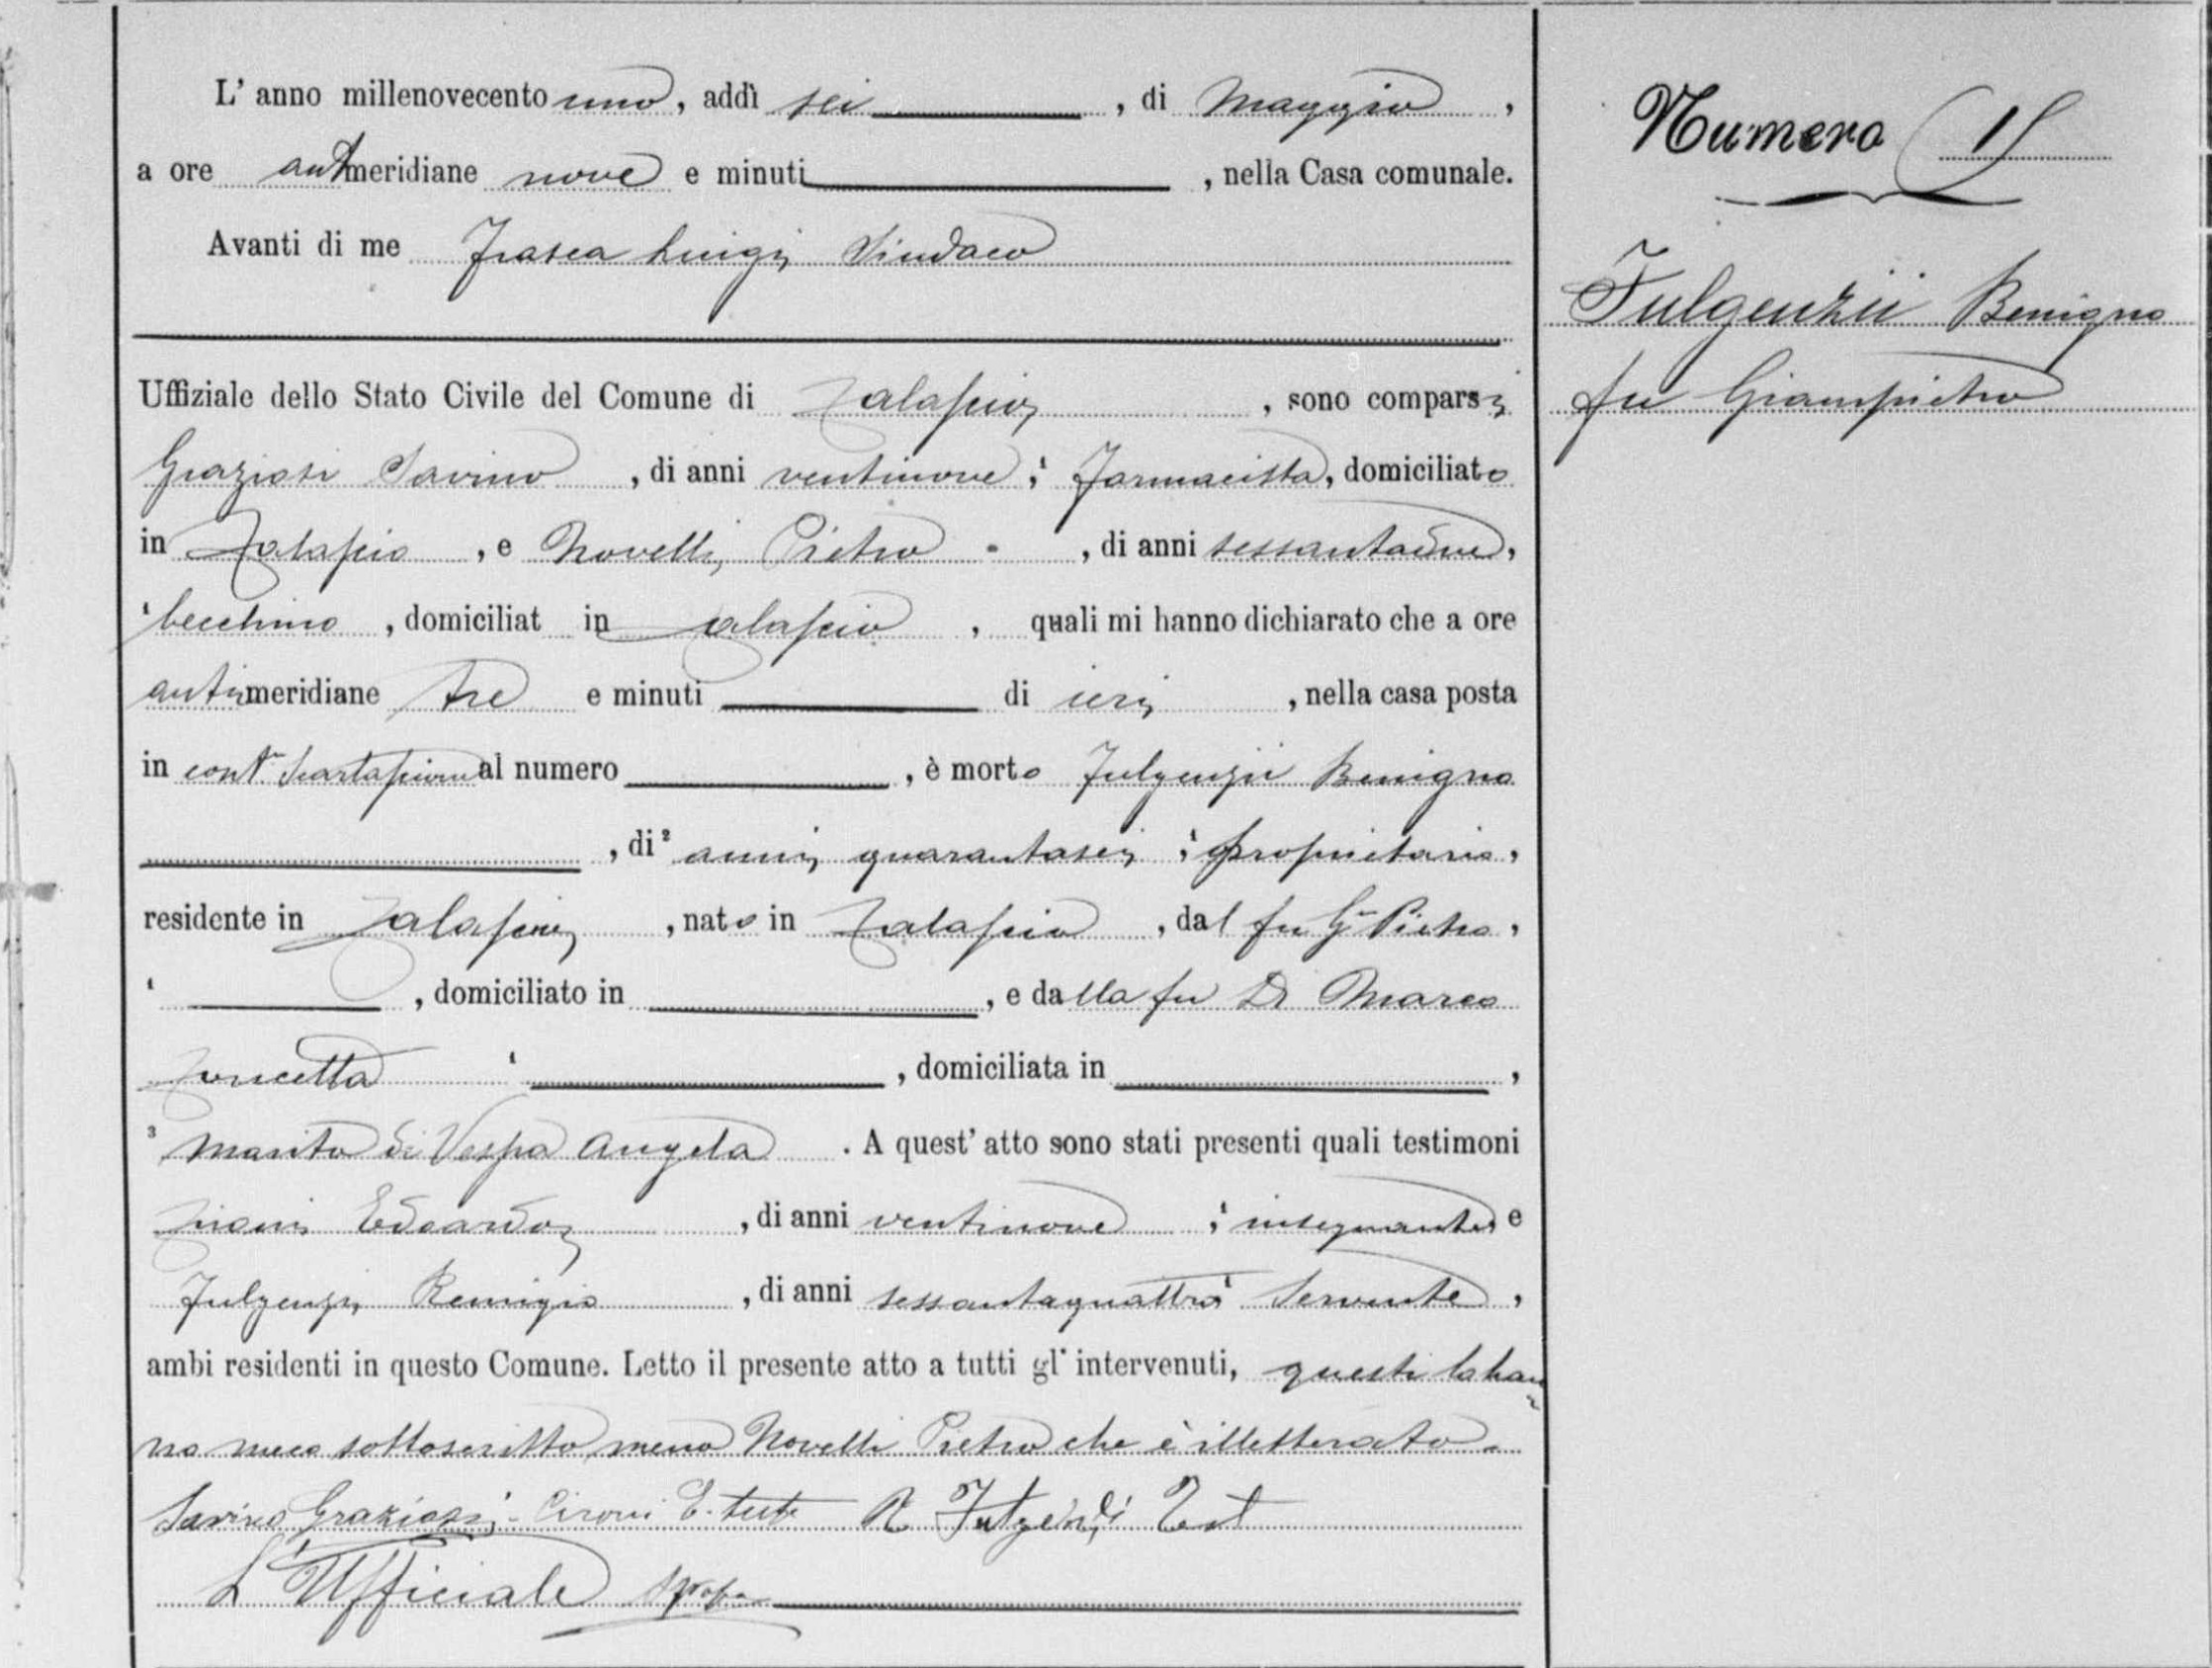 L' anno millenovecento uno, addì sei, di Maggio,
a ore antimeridiane nove e minuti, nella Casa comunale.
Avanti di me Frasca Luigi Sindaco
Uffiziale dello Stato Civile del Comune di Calascio, sono comparsi
Graziosi Savino, di anni ventinove, farmacista, domiciliato
in Calascio, e Novelli Pietro, di anni sessantadue,
becchino, domiciliat in Calascio, quali mi hanno dichiarato che a ore
antimeridiane tre e minuti di ieri, nella casa posta
in al numero, è morto Fulgenzii Benigno
, di² anni quarantasei, ¹ proprietario,
residente in Calascio, nato in Calascio, dal fu G. Pietro,
¹, domiciliato in, e dalla fu Di Marco
Concetta ¹, domiciliata in,
³ marito di Vespa Angela. A quest' atto sono stati presenti quali testimoni
Edoardo, di anni ventinove, ¹ insegnante e
Fulgenzi Remigio, di anni sessantaquattro ¹ Servente,
ambi residenti in questo Comune. Letto il presente atto a tutti gl' intervenuti, questi lo han
no meco sottoscritto, meno Novelli Pietro che è illetterato.
Savino Graziosi - Cironi E. teste R Fulgenzi Test
L'Ufficiale
Numero
Fulgenzii Benigno
fu Giampietro